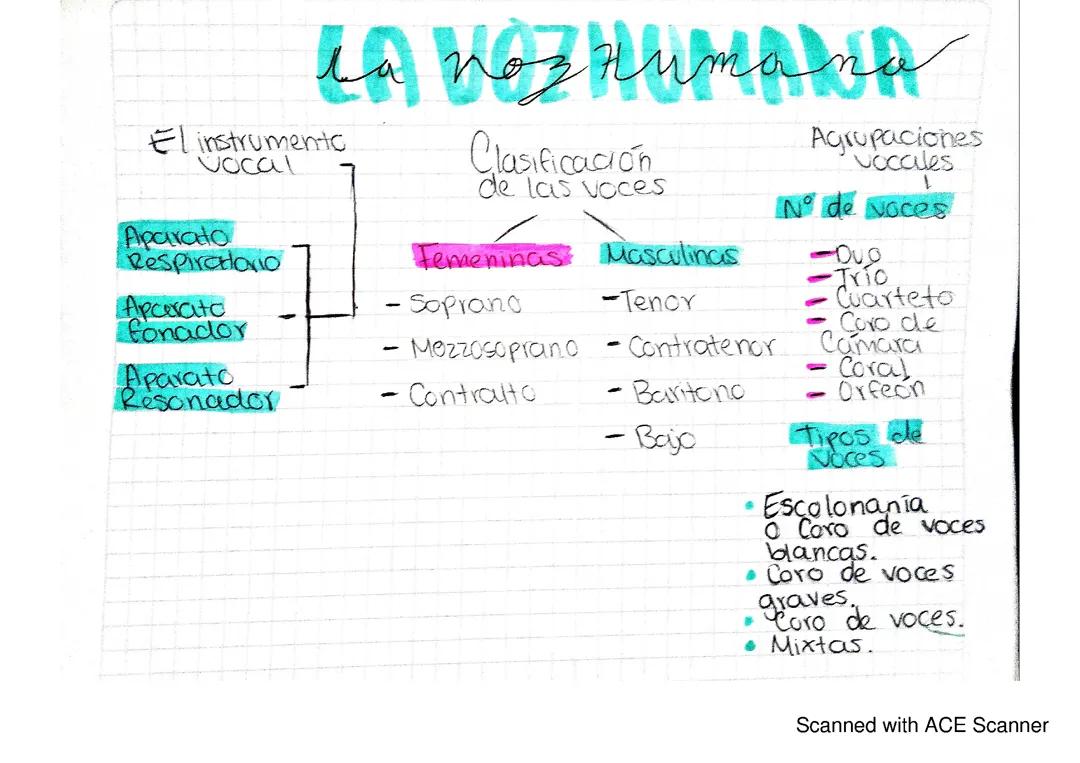 La voz Humana
El instrumento
vocal
Aparato
Respiratorio
Aparato
fonador
Aparato
Resonador
Clasificación
de las voces
Femeninas
- Soprano
- Mezzosoprano
- Contralto
Masculinas
- Tenor
- Contratenor
- Baritono
- Bajo
Agrupaciones
vocales
Nº de voces
- Duo
- Trío
- Cuarteto
- Coro de
Cámara
- Coral
- Orfeón
Tipos de
voces
• Escolonanía
o Coro de voces
blancas.
• Coro de voces
graves.
• Coro de voces.
• Mixtas.
Scanned with ACE Scanner